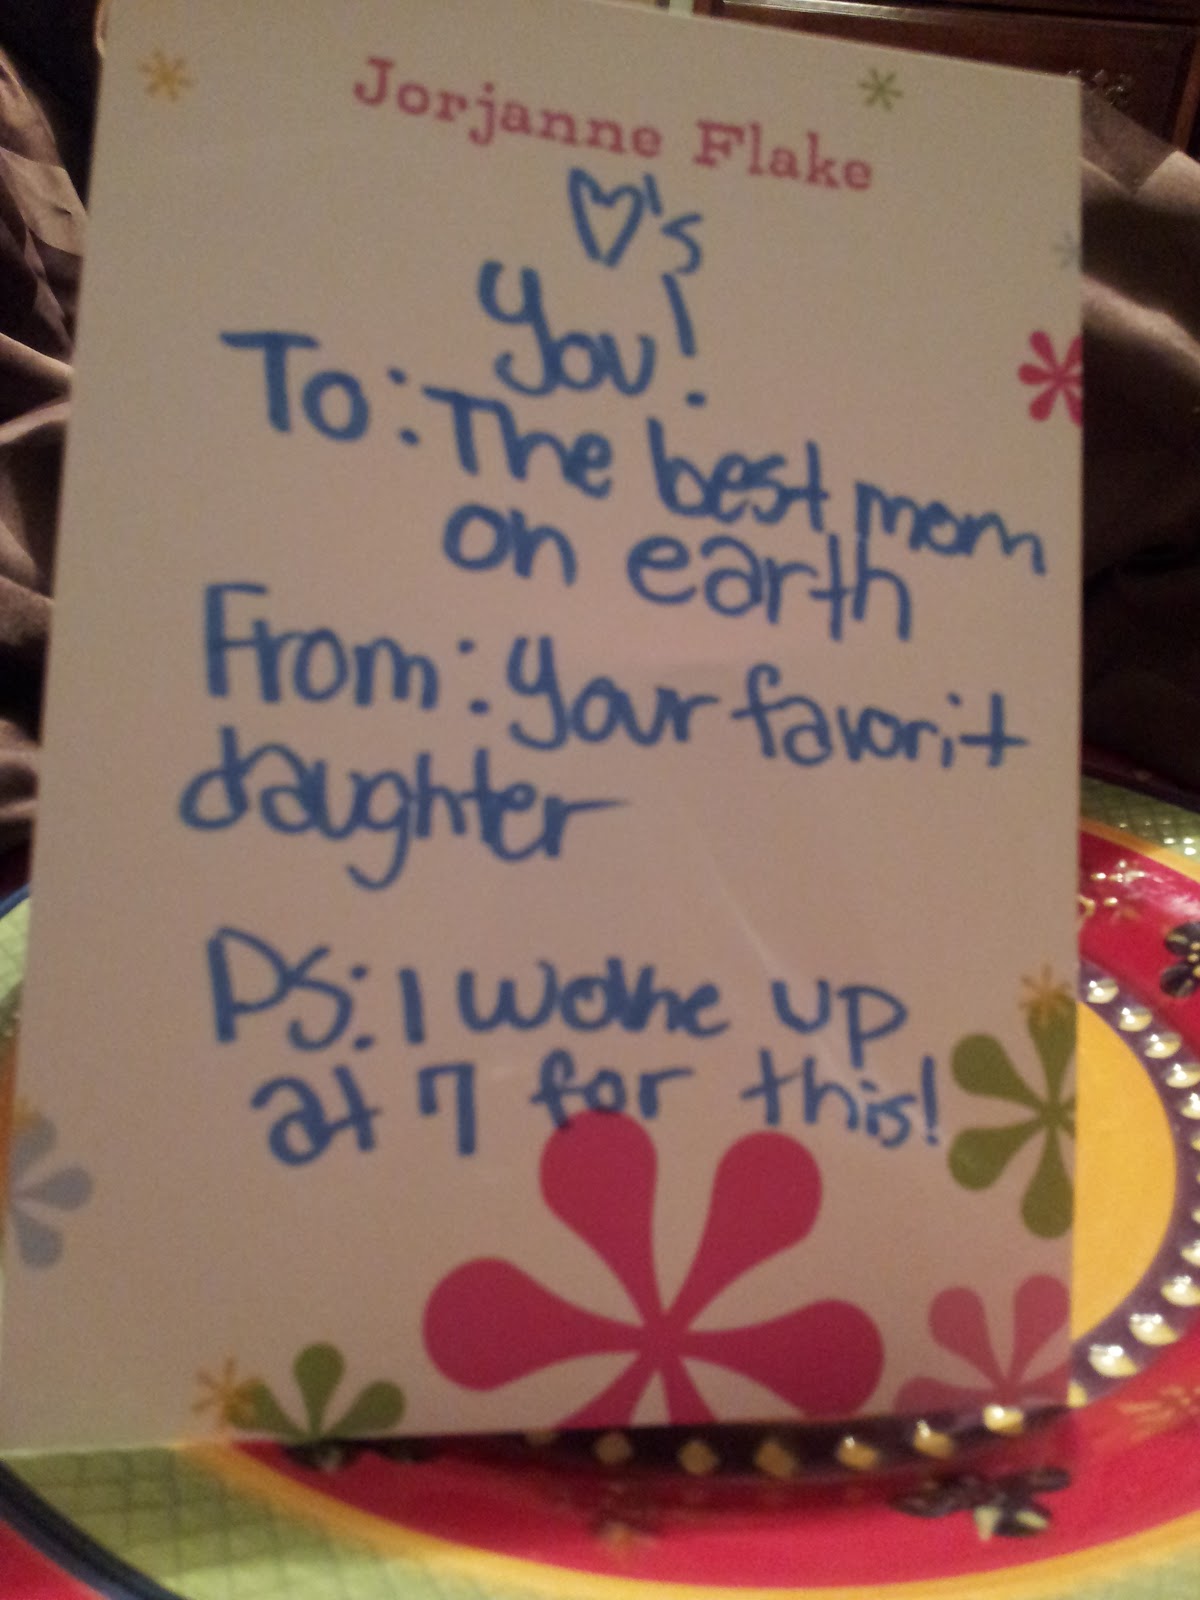 Jorjanne Flake
♡'s
you!
To: The best mom
on earth
From: your favorit
daughter
PS: I wolke up
at 7 for this!